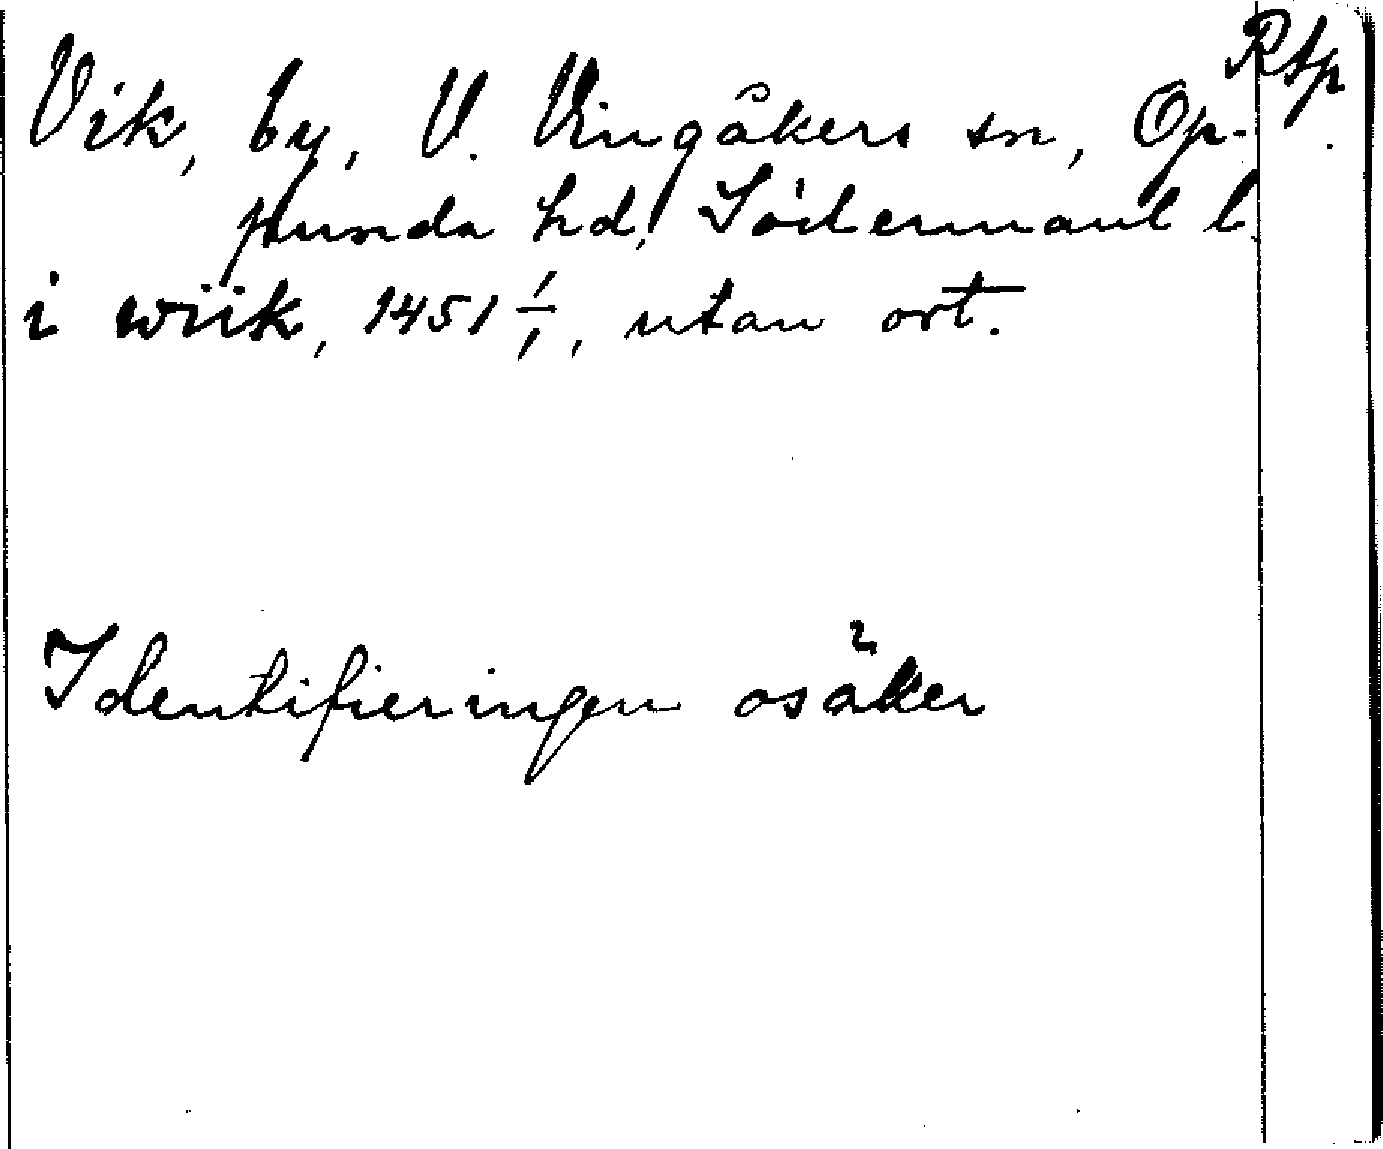 Rsp.
Vik, by, V. Vingåkers sn, Op-
punda hd, Södermanl l.
i wiik, 1451 1/1, utan ort.
Identifieringen osäker